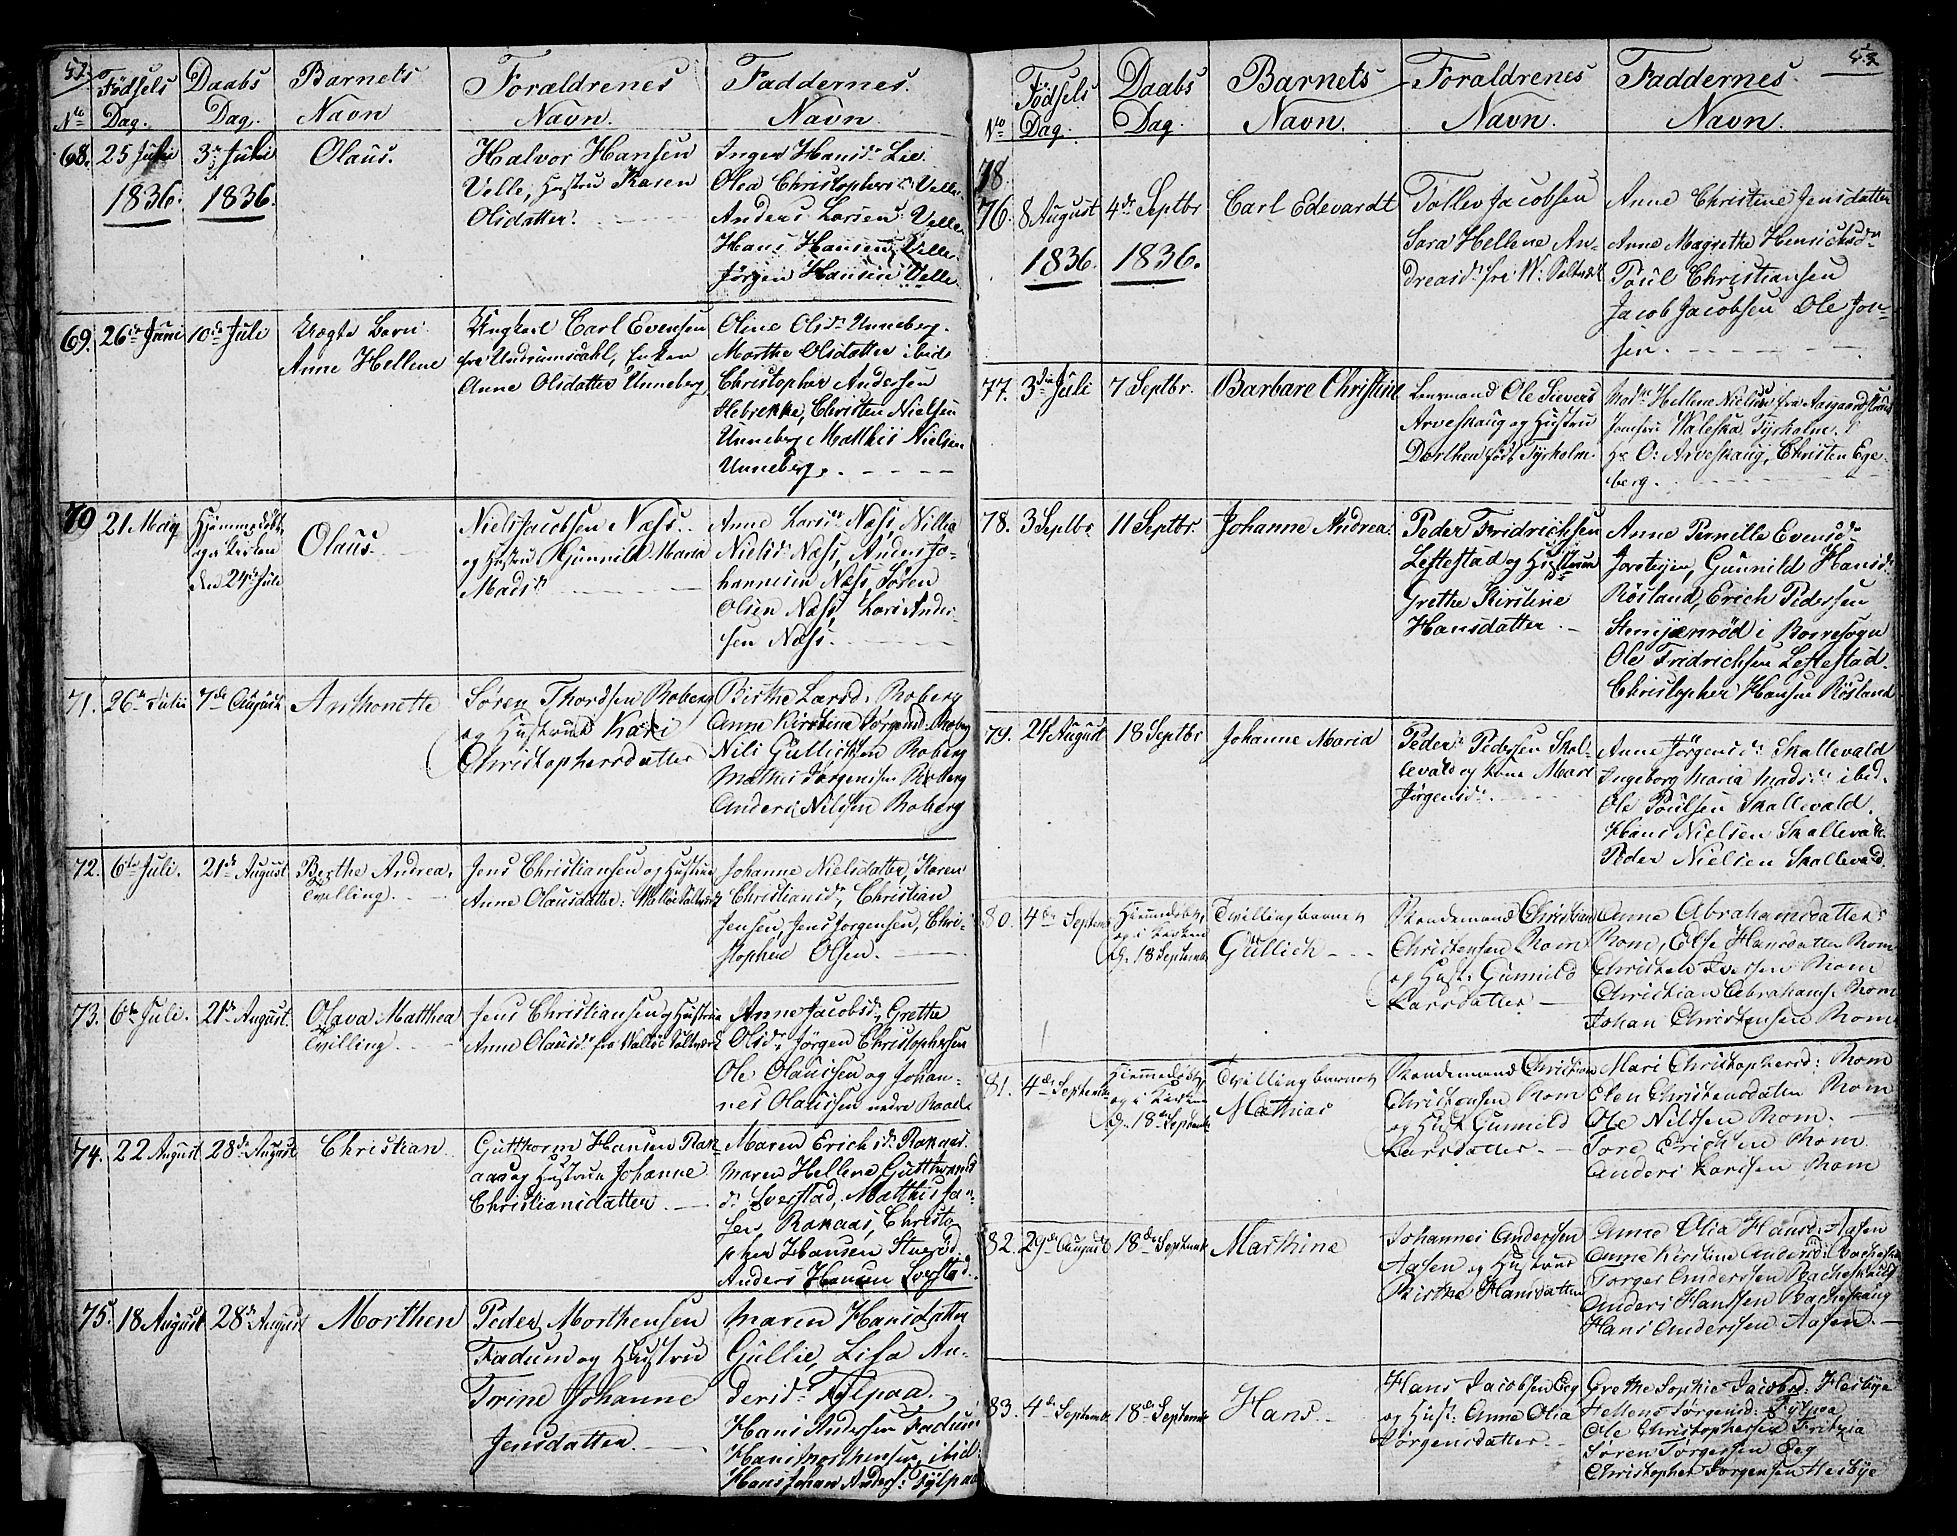 52.
No Fødsels Dag. Daabs Dag. Barnets Navn Forældrenes Navn. Faddernes Navn.
68. 25 Juli 1836. 3die Juli 1836. Olaus.
Halvor Hansen
Velle, Hustru Karen
Olsdatter.
Inger Hansdr Lie.
Olea Christophersdr Velle.
Anders Larsen Velle.
Hans Hansen Velle.
Jørgen Hansen Velle.
69. 26de Juni 10de Juli Uægte Barn
Anne Hellene
Ungkarl Carl Evensen
fra Undrumsdahl, Enken
Anne Olsdatter Unneberg,
Oline Olsdr Unneberg.
Marthe Olsdatter ibid:
Christopher Andersen
Hebrekke, Christen Nielsen
Unneberg Matthis Nielsen
Unneberg.
70 21 Maij Hjemmedøbt,
og i Kirken
den 24de Juli
Olaus.
Niels Jacobsen Næss.
og Hustru Gunnild Maria
Madsdr
Anne Larsdr Næss, Nillia
Nielsdr Næss, Anders Jo-
hannesen Næss, Søren
Olsen Næss, Lars Ander-
sen Næss.
71. 26de Juli 7de August Anthonette
Søren Thordsen Roberg
og Hustrue Kari
Christophersdatter
Birthe Larsd: Roberg
Anne Kirstine Jørgensd: Roberg
Nils Gullichsen Roberg
Mathis Jørgenssen Roberg
Anders Nilsen Roberg
72. 6te Juli. 21de August Berthe Andrea,
Tvilling.
Jens Christiansen og Hustrue
Anne Olausdatter: Walløe Saltværk
Johanne Nielsdatter, Karen
Christiansdr, Christian
Jensen, Jens Jørgensen, Chri-
stopher Olsen.
73. 6te Juli. 21de August. Olava Matthea
Tvilling.
Jens Christiansen og Hustrue
Anne Olausdr fra Walløe Saltværk
Anne Jacobsdr, Grethe
Olsdr, Jørgen Christophersen
Ole Olaussen og Johan-
nes Olaussen nedre Raael.
74. 22 August 28de August Christian
Gutthorm Hansen Rak-
aas og Hustrue Johanne
Christiansdatter.
Maren Erichsdr Rakaas.
Maren Hellene Gutthormd
dr Sverstad, Matthis Jan-
sen Rakaas, Christo
pher Hansen Stuerød.
Anders Hansen Sverstad.
75. 18 August 28de August Morthen
Peder Morthensen
Fadum og Hustru
Trine Johanne
Jensdatter.
Maren Hansdatter
Gullie, Lisa An-
dersdr Tylpaa.
Hans Andersen Fadum
Hans Morthensen ibid:
Hans Johan Anders: Tylpaa
53
No Fødsels Dag. Daabs Dag. Barnets Navn. Forældrenes Navn. Faddernes Navn.
78
76. 8 August 1836. 4de Septbr 1836. Carl Edevardt
Tollev Jacobsen
Sara Hellene An-
dreasdr fra W: Saltværk
Anne Christine Jensdatter
Anne Magrethe Henrichsdr
Poul Christiansen
Jacob Jacobsen Ole Jon-
sen.
77. 3die Juli 7 Septbr. Barbare Christine
Lensmand Ole Sivers
Arveskaug og Hustru
Dorthea født Tyrholm.
Mad: Hellene Nielsen fra Aasgaardstrand
Jomfru Waleska Tyrholm.
Hr O: Arveskaug, Christen Ege-
berg.
78. 3 Septbr 11 Septbr. Johanne Andrea.
Peder Fridrichsen
Leftestad og Hustrue
Grethe Kirstine
Hansdatter.
Anne Pernille Evensdr
Jareteigen, Gunnild Hansdr
Røsland, Erich Pedersen
Steenjærnrød i Borresogn
Ole Fridrichsen Leftestad.
Christopher Hansen Røsland
79. 24 August 18 Septbr Johanne Maria
Peder Pedersen Skal-
levald og Kone Mari
Jørgensdr
Anne Jørgensdr Skallevald
Ingeborg Maria Madsdr ibid.
Ole Poulsen Skallevald.
Hans Nielsen Skallevald.
Peder Nielsen Skallevald.
80. 4de September Hiemmedøbt,
og i Kirken
d. 18 September
Tvillingbarnet
Gullich
Skredemand Christian
Christensen Rom
og Hust: Gunnild
Larsdatter
Anne Abrahamsdatter
Rom, Else Hansdatter Rom
Christen Iversen Rom
Christian Abrahams: Rom
Johan Christensen Rom
81. 4de September Hiemmedøbt,
og i Kirken
d. 18de September
Tvillingbarnet
Mathias
Skredemand Christian
Christensen Rom
og Hust: Gunnild
Larsdatter
Mari Christophersd: Rom
Elen Christensdatter Rom
Ole Nilssen Rom.
Tore Erichsen Rom
Anders Larssen Rom
82. 29de August 18de September Marthine
Johannes Andersen
Aasen og Hustrue
Birthe Hansdatter
Anne Olia Hansd: Aasen
Anne Kirstine Andersd: Bacheskaug
Torger Anderssen Bacheskaug
Anders Hanssen Bacheskaug
Hans Anderssen Aasen.
83. 4de September 18de September Hans
Hans Jacobsen Eeg
og Hust: Anne Olia
Jørgensdatter.
Grethe Sophie Jacobsd: Hesbye
Hellene Jørgensd: Tylpaa
Ole Christophersen Fritzia
Søren Torgerssen Eeg
Christopher Jørgensen Hesbye